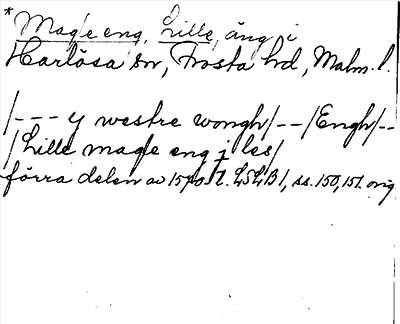 * Magle eng, Lille, äng i
Harlösa sn, Frosta hd, Malm. l.
/--- y westre wongh/--/Engh/--
/Lille magle eng j les/
förra delen av 1570 t. LSLB 1, ss. 150, 151. orig.